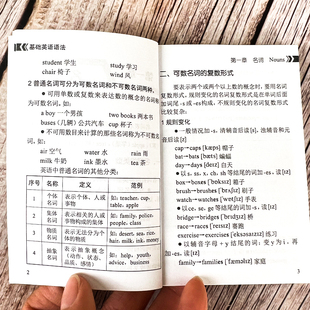 基础英语语法
student 学生 study 学习
chair 椅子 wind 风
2 普通名词可分为可数名词和不可数名词两种。
• 可用单数或复数来表达数的概念的名词称为可数名词。如:
a boy 一个男孩 two books 两本书
buses (几辆) 公共汽车 cup 杯子
• 不可用数目来计算的那些名词称为不可数名词。如:
air 空气 water 水 rain 雨
milk 牛奶 ink 墨水 tea 茶
英语中普通名词的其他分类:
序号 名称 定义 范例
1 个体名词 表示个体、人或事物 如: teacher, cup, table, apple
2 集体名词 表示相关的人或事物构成的集体 如: family, police, people, class
3 物质名词 表示无法分为个体的物质 如: desert, sea, rain, hair, milk, ink, money
4 抽象名词 表示抽象概念(动作、状态、品质、感情) 如: help, youth, advice, business
2
第一章 名词 Nouns
二、可数名词的复数形式
要表示两个或两个以上的概念时,要用名词复数形式。规则变化的名词复数形式是在单词后面加词尾 -s 或 -es 构成,不规则变化的名词有其特定的复数形式。
1 规则变化
• 一般情况加 -s, 清辅音后读[s], 浊辅音和元音后读[z]
cap→caps [kæps] 帽子
bat→bats [bæts] 蝙蝠
day→days [deɪz] 天(日子)
• 以 s, ss, x, ch, sh 等结尾的词加 -es, 读[ɪz]
box→boxes ['bɒksɪz] 箱子
brush→brushes ['brʌʃɪz] 刷子
watch→watches ['wɒtʃɪz] 手表
• 以 ce, se, ge 等结尾的词加 -s, 读[ɪz]
bridge→bridges ['brɪdʒɪz] 桥
race→races ['reɪsɪz] 赛跑
exercise→exercises ['eksəsaɪzɪz] 练习
• 以辅音字母 + y 结尾的词: 变 y 为 i, 再加 -es, 读[ɪz]
family→families ['fæməlɪz] 家庭
3